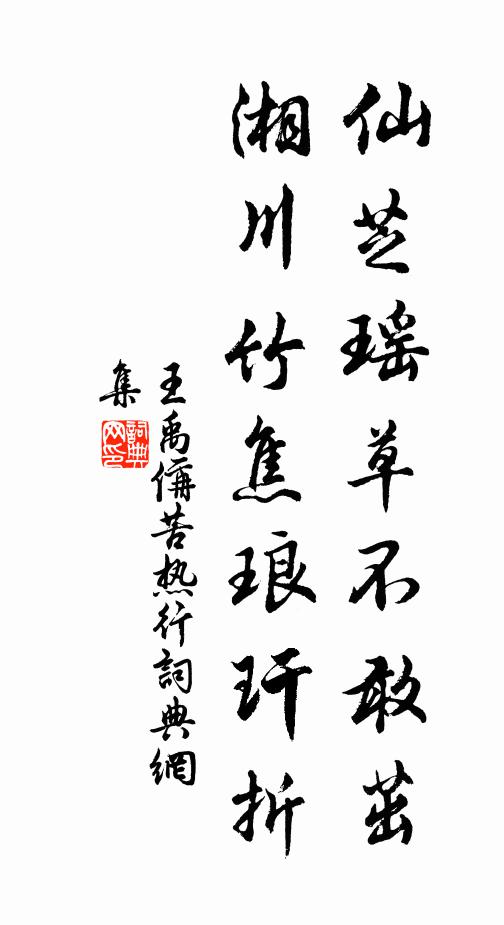 仙芝瑶草不敢茁
湘川竹焦琅玕折
王禹偁苦热行詞典網
集
詞典网印